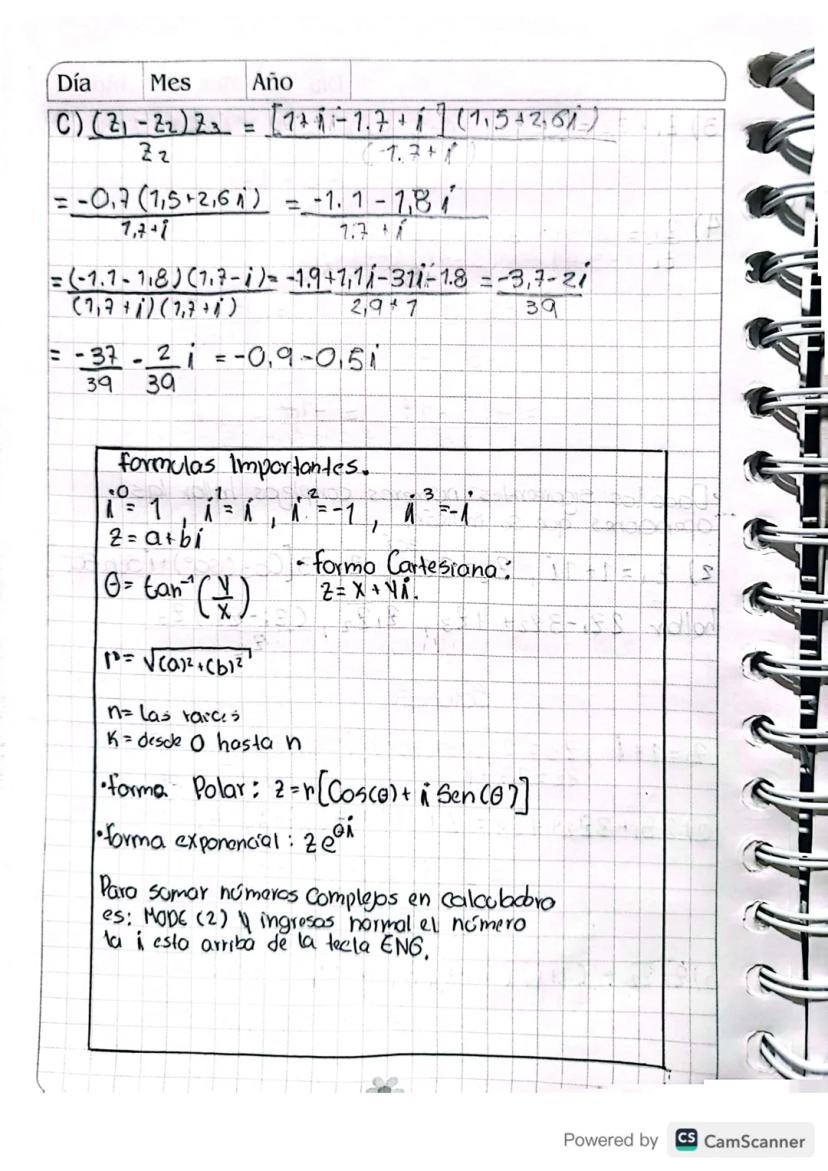 Día Mes Año
C) (z₁ - z₂) z₃ / z₂ = [1 + i - 1.7 + i] (1,5 + 2,6i) / (-1.7 + i)
= -0,7 (1,5 + 2,6 i) / 1,7 + i = -1.1 - 1,8 i / 1.7 + i
= (-1.1 - 1,8) (1,7 - i) / (1,7 + i) (1,7 + i) = -1.9 + 1,1i - 31i - 1.8 / 2,9 + 1 = -3,7 - 2i / 39
= -37/39 - 2/39 i = -0,9 - 0,5i
formulas Importantes.
i⁰ = 1 , i¹ = i , i² = -1 , i³ = -i
z = a + bi
• formo Cartesiana:
θ = tan⁻¹ (y/x) z = x + yi.
r = √(a)² + (b)²
n = las raices
K = desde 0 hasta n
• forma Polar: z = r [Cos(θ) + i Sen (θ)]
• forma exponencial : z e^θi
Para sumar números Complejos en calculadora
es: MODE (2) y ingresas normal el número
la i esta arriba de la tecla ENG.
Powered by CS CamScanner